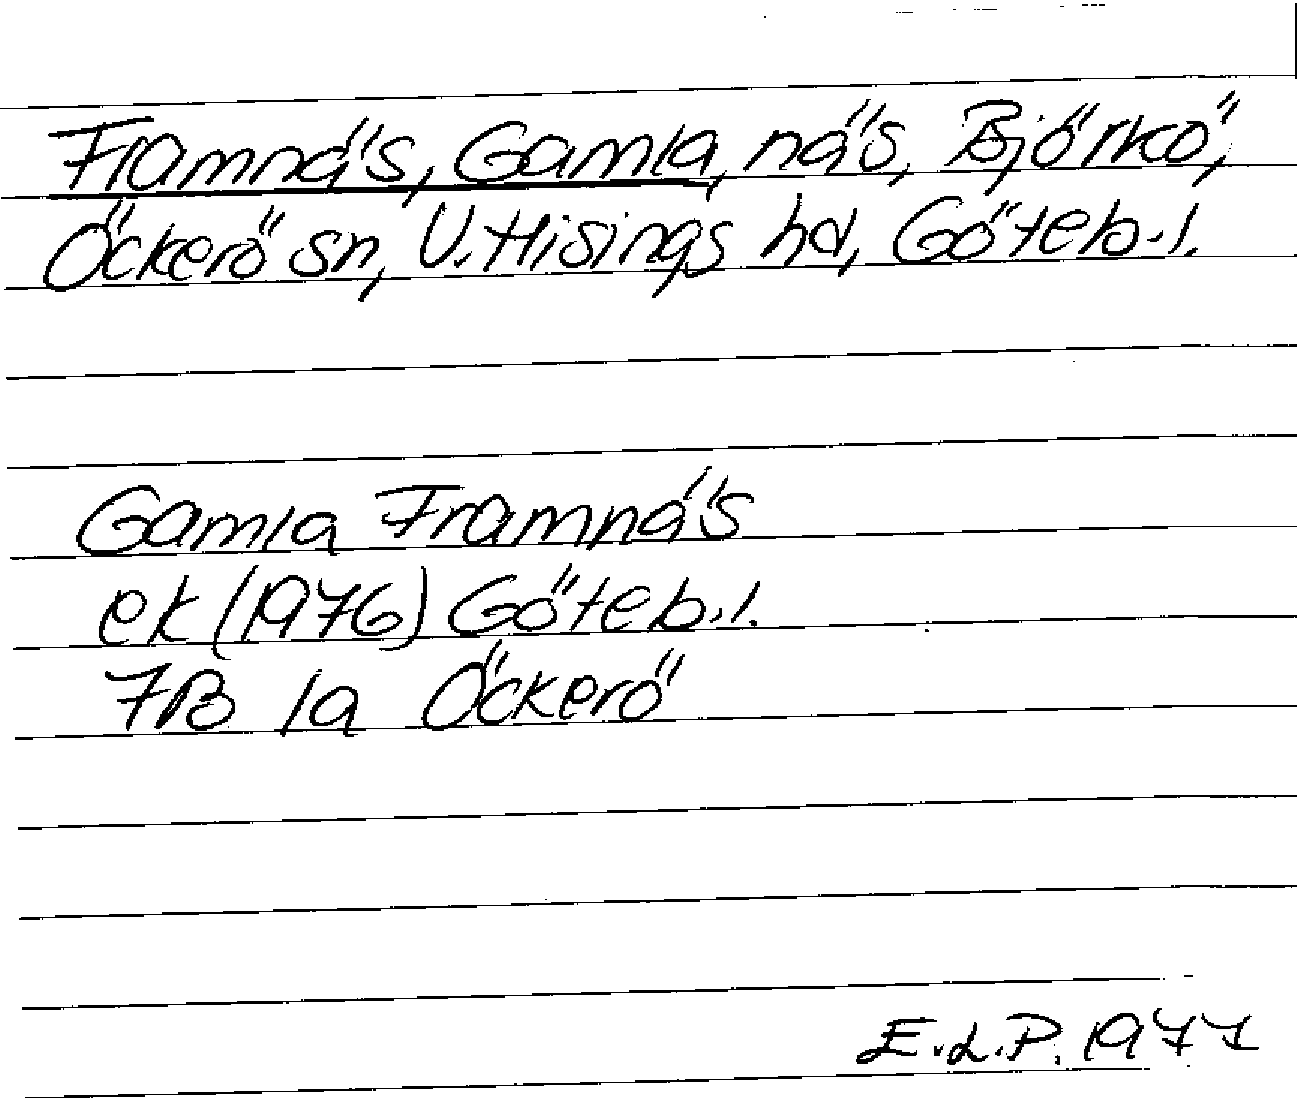 Framnäs, Gamla, näs, Björkö,
Öckerö sn, V. Hisings hd, Göteb.l.
Gamla Framnäs
ek (1976) Göteb.l.
7B 1a Öckerö
E.L.P. 1977